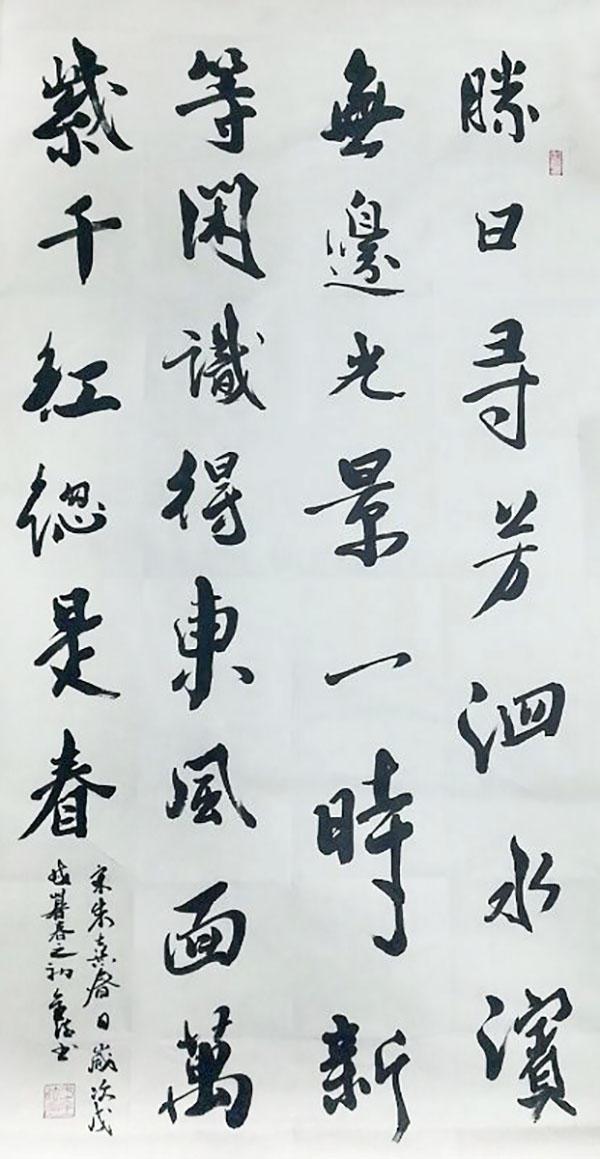 勝日尋芳泗水濱
無邊光景一時新
等閑識得東風面萬
紫千紅緫是春
宋朱熹春日歲次戊
戌暮春之初
書